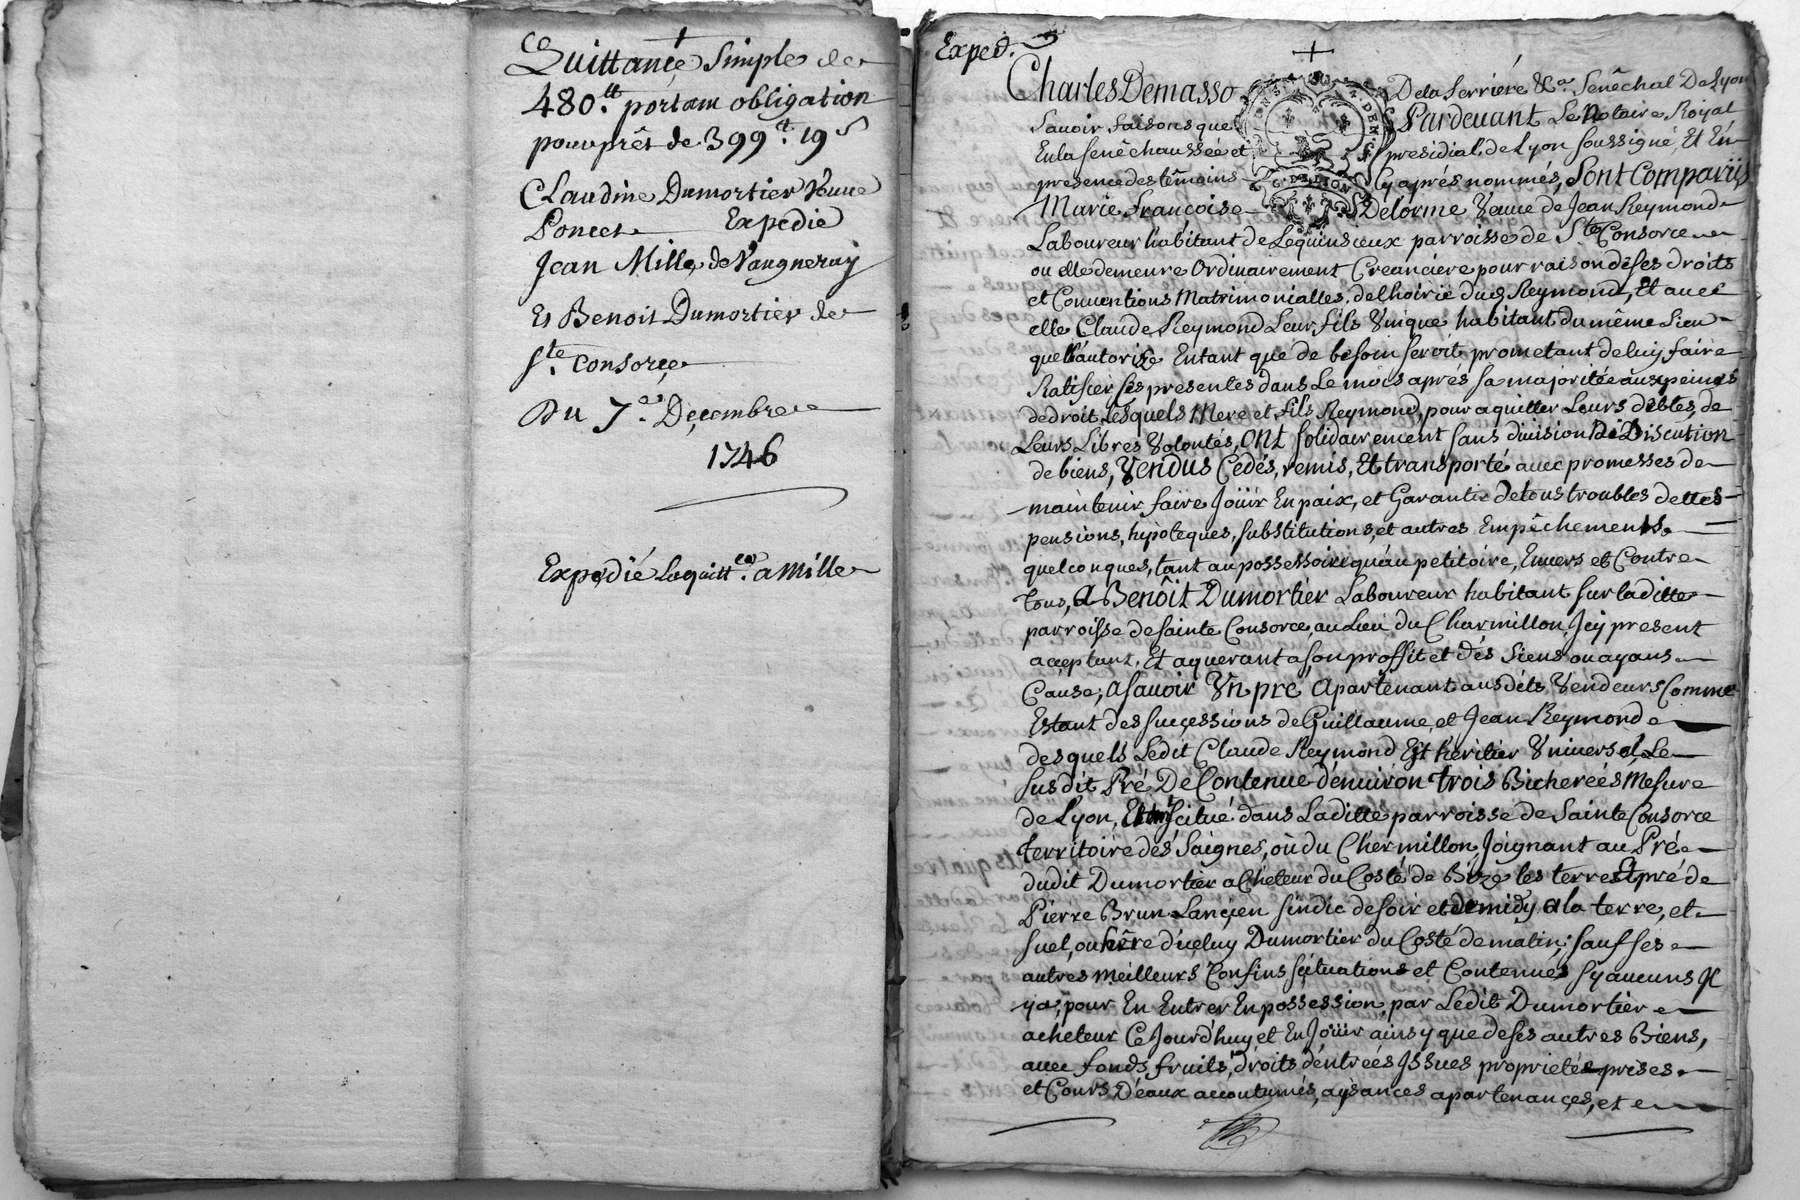 Quittance Simple de
480.tt portant obligation
pour prêt de 399.tt 19 s
Claudine Dumortier Veuve
Poncet Expedié
Jean Mille de Vaugneray
Et Benoit Dumortier de
Ste. Consorce
Du 7.e Decembre
1746
Expedié la quitt.ce a Mille
Exped.
Charles Demasso De la Ferriére &.a Senêchal De Lyon
Savoir faisons que Pardevant Le Notaire Royal
En la senêchaussée et presidial de Lyon soussigné, Et En
presence des têmoins Cy aprés nommés, Sont Comparüs
Marie Françoise Delorme Veuve de Jean Reymond
Laboureur habitant de Lequinsieux parroisse de Ste. Consorce
ou elle demeure Ordinairement Creanciere pour raison de ses droits
et Conventions Matrimonialles, de lhoirie dud Reymond, Et avec
elle Claude Reymond Leur fils Vnique habitant du même Lieu
quell'autorize Entant que de besoin seroit prometant de luy faire
Ratifier ses presentes dans Le mois aprés sa majoritée aux peines
de droit, Lesquels Mere et fils Reymond, pour aquitter Leurs debtes, de
Leurs Libres Volontés, Ont solidairement sans division Ni Discution
de biens, Vendus Cédés, remis, Et transporté avec promesses de
maintenir faire Joüir En paix, et Garantir de tous troubles dettes
pensions, hipoteques, substitutions, et autres Empêchements
quelconques, tant au possessoire qu'au petitoire, Envers et Contre
Tous, A Benôit Dumortier Laboureur habitant sur laditte
parroisse de sainte Consorce, au Lieu du Charmillon, Icy present
acceptant, Et aquerant a son proffit et des siens ou ayans
Cause; Asavoir Vn pré Apartenant ausdits Vendeurs Comme
Estant des successions de Guillaume et Jean Reymond
desquels Ledit Claude Reymond Est héritier Vniversel, Le
susdit Pré De Contenue d'environ trois Bicherées Mesure
de Lyon, scitué dans Laditte parroisse de Sainte Consorce
territoire des Saignes, ou du Chermillon, Joignant au Pré
dudit Dumortier acheteur du Costé de Bize les terres Et pré de
Pierre Brun Lançien sindic de soir et de midy A la terre, et
suel, ou d'iceluy Dumortier du Costé de matin; sauf ses
autres meilleurs Confins scituations et Contenues sy aucuns Il
ya, pour En Entrer En possession par Ledit Dumortier
acheteur Ce Jourd'huy et En Joüir ainsy que de ses autres Biens,
avec fonds, fruits, droits d'entrées Issues proprietés prises
et Cours D'eaux accoutumés, aysances apartenances, et